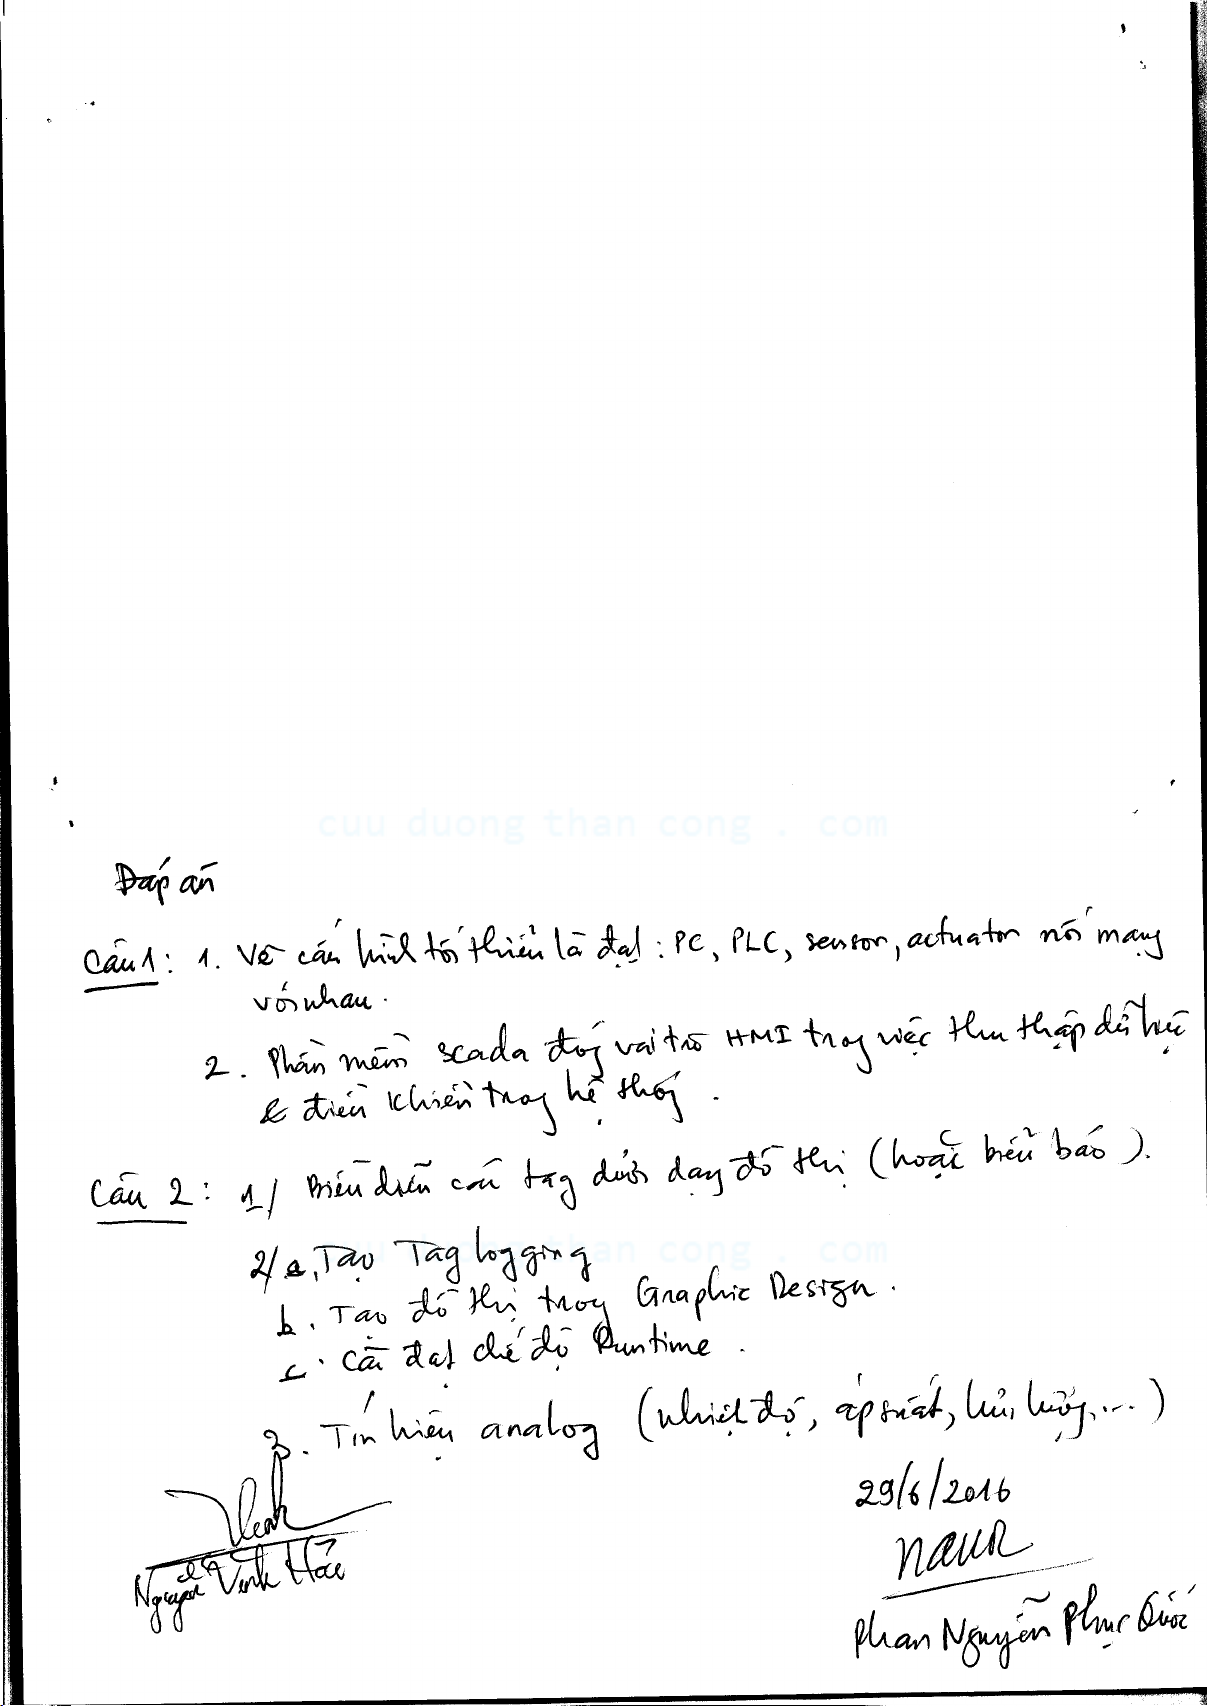 cuu duong than cong . com
Đáp án
Câu 1: 1. Vẽ cấu hình tối thiểu là đạt: PC, PLC, sensor, actuator nối mạng
với nhau.
2. Phần mềm scada đóng vai trò HMI trong việc thu thập dữ liệu
& điều khiển trong hệ thống.
Câu 2: 1/ Biểu diễn các tag dưới dạng đồ thị (hoặc biểu báo).
cuu duong than cong . com
2/ a, Tạo Tag logging
b. Tạo đồ thị trong Graphic Design.
c. Cài đặt chế độ Runtime.
3. Tín hiệu analog (nhiệt độ, áp suất, lưu lượng,...)
29/6/2016
Nguyễn Vinh
Phan Nguyễn Phục Quốc